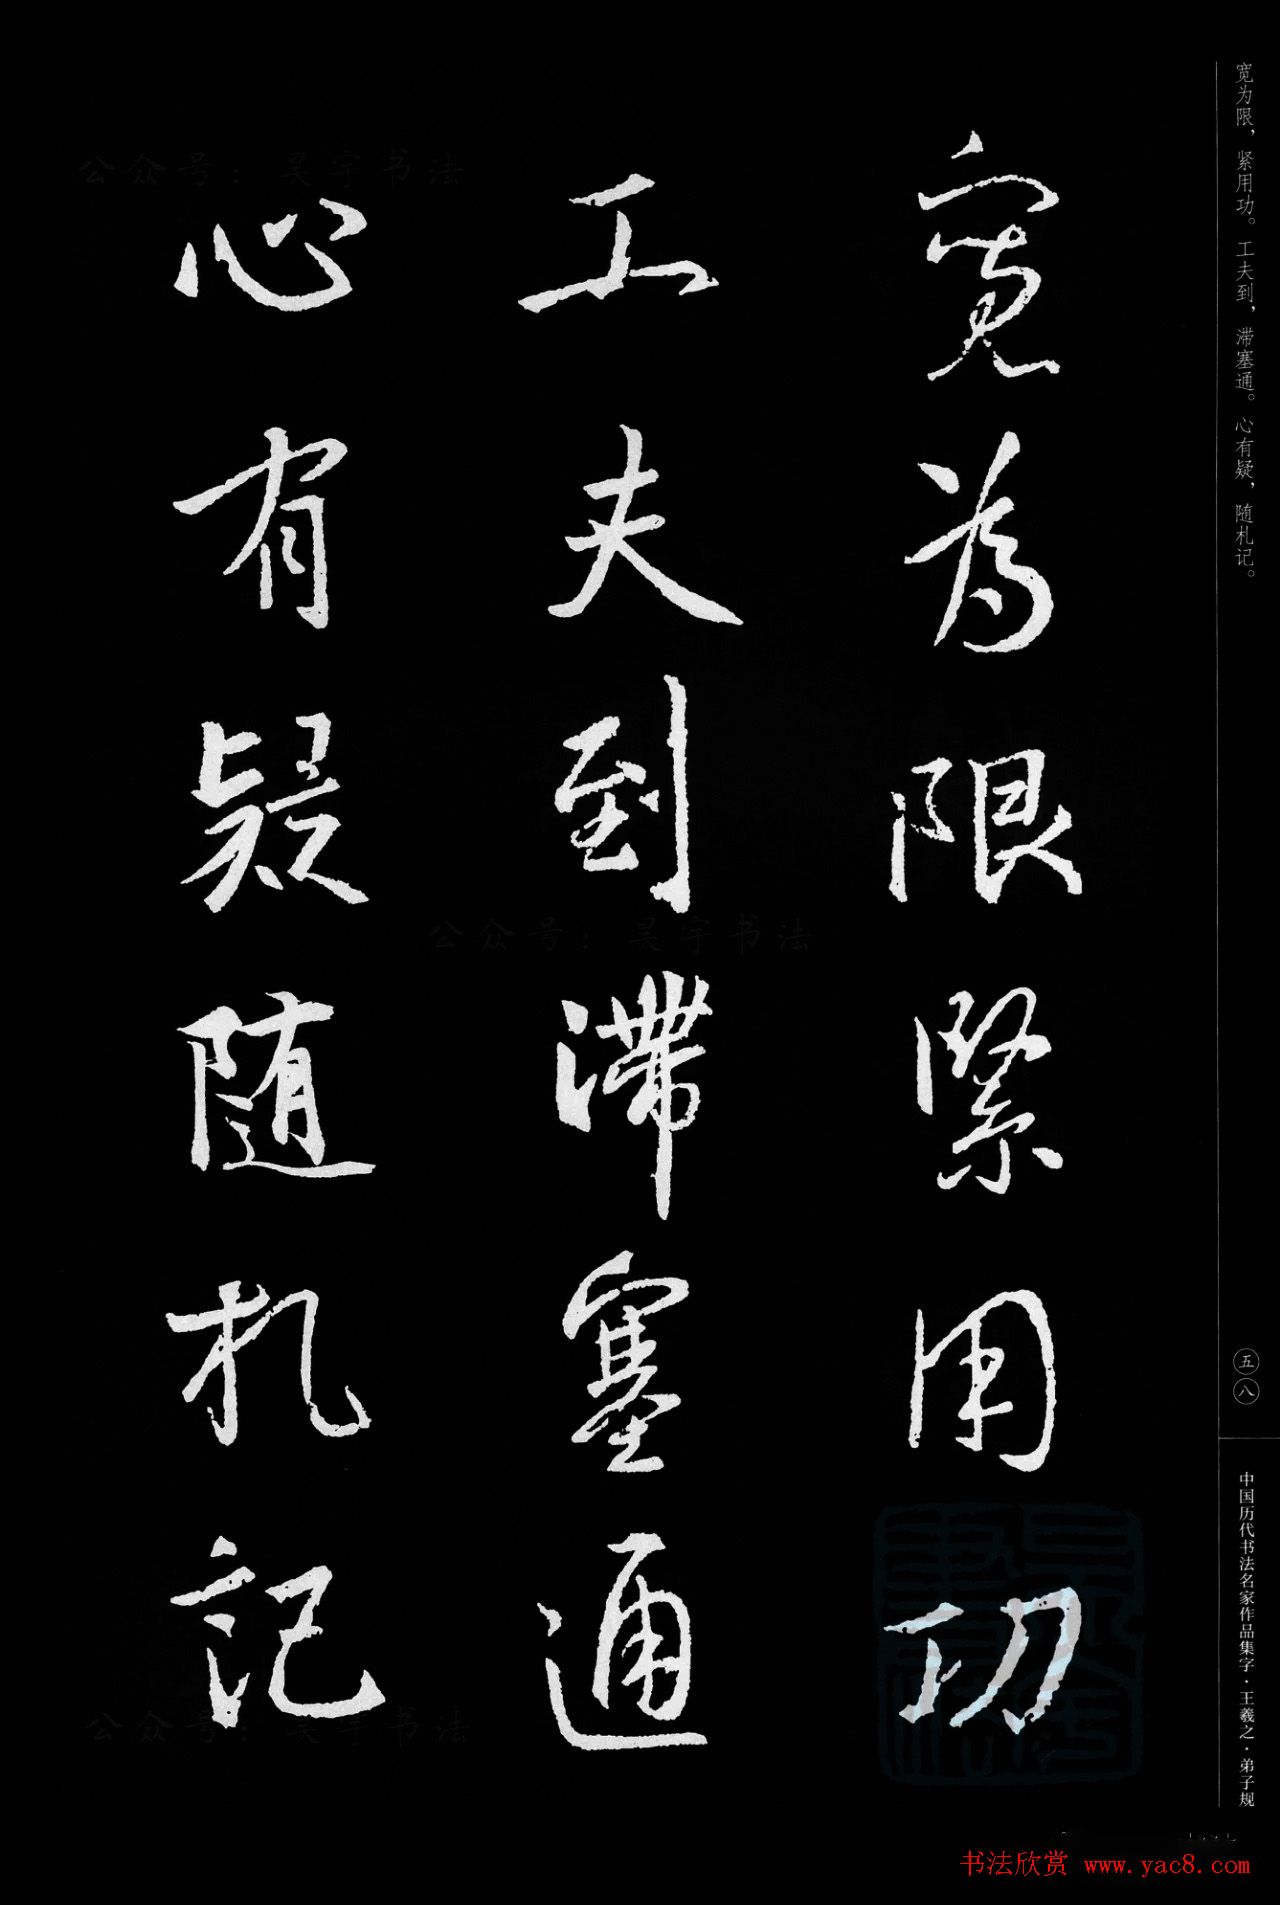 宽为限，紧用功。工夫到，滞塞通。心有疑，随札记。
寬為限緊用功
工夫到滯塞通
心有疑隨札記
五八
中国历代书法名家作品集字·王羲之·弟子规
公众号：昊宇书法
公众号：昊宇书法
公众号：昊宇书法
书法欣赏 www.yac8.com